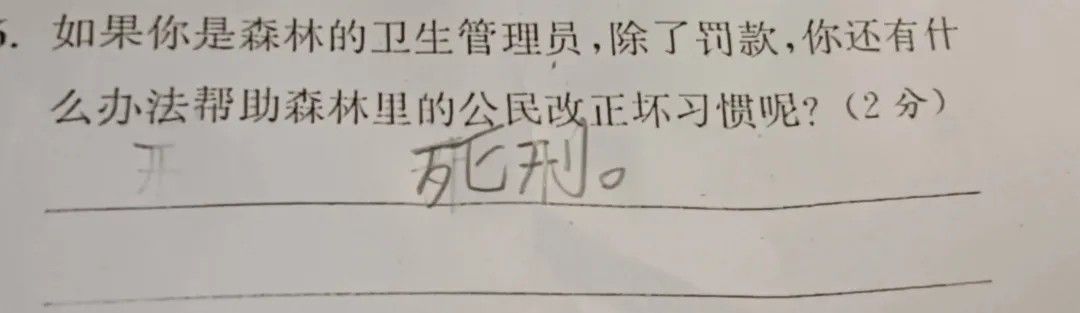 5. 如果你是森林的卫生管理员,除了罚款,你还有什
么办法帮助森林里的公民改正坏习惯呢?(2分)
开 死刑。